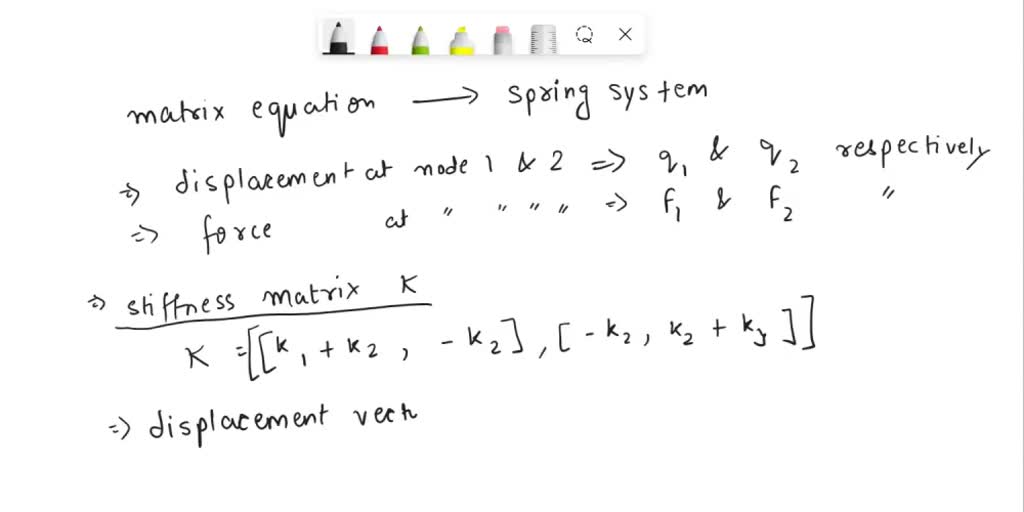 matrix equation → spring system
⇒ displacement at node 1 & 2 ⇒ q₁ & q₂ respectively
⇒ force at " " " " ⇒ F₁ & F₂ "
⇒ stiffness matrix K
K = [[k₁ + k₂, - k₂], [- k₂, k₂ + k₃]]
⇒ displacement vect